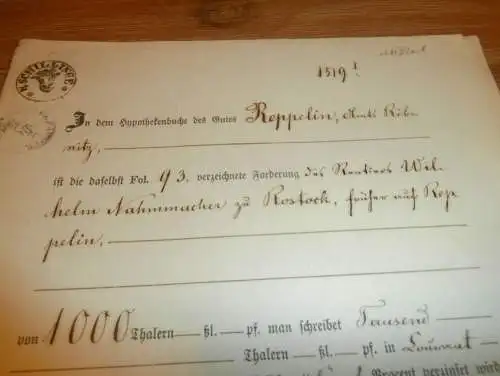 8 SCHILLINGE
1519¹
In dem Hypothekenbuche des Gutes Reppelin, Amts Rib-
nitz,
ist die daselbst Fol. 93. verzeichnete Forderung des Rentiers Wil-
helm Nahmmacher zu Rostock, früher auf Rep
pelin,
von 1000 Thalern — ßl. — pf. man schreibet Tausend
Thalern — ßl. — pf. in Louisd'or
Procent verzinset wird